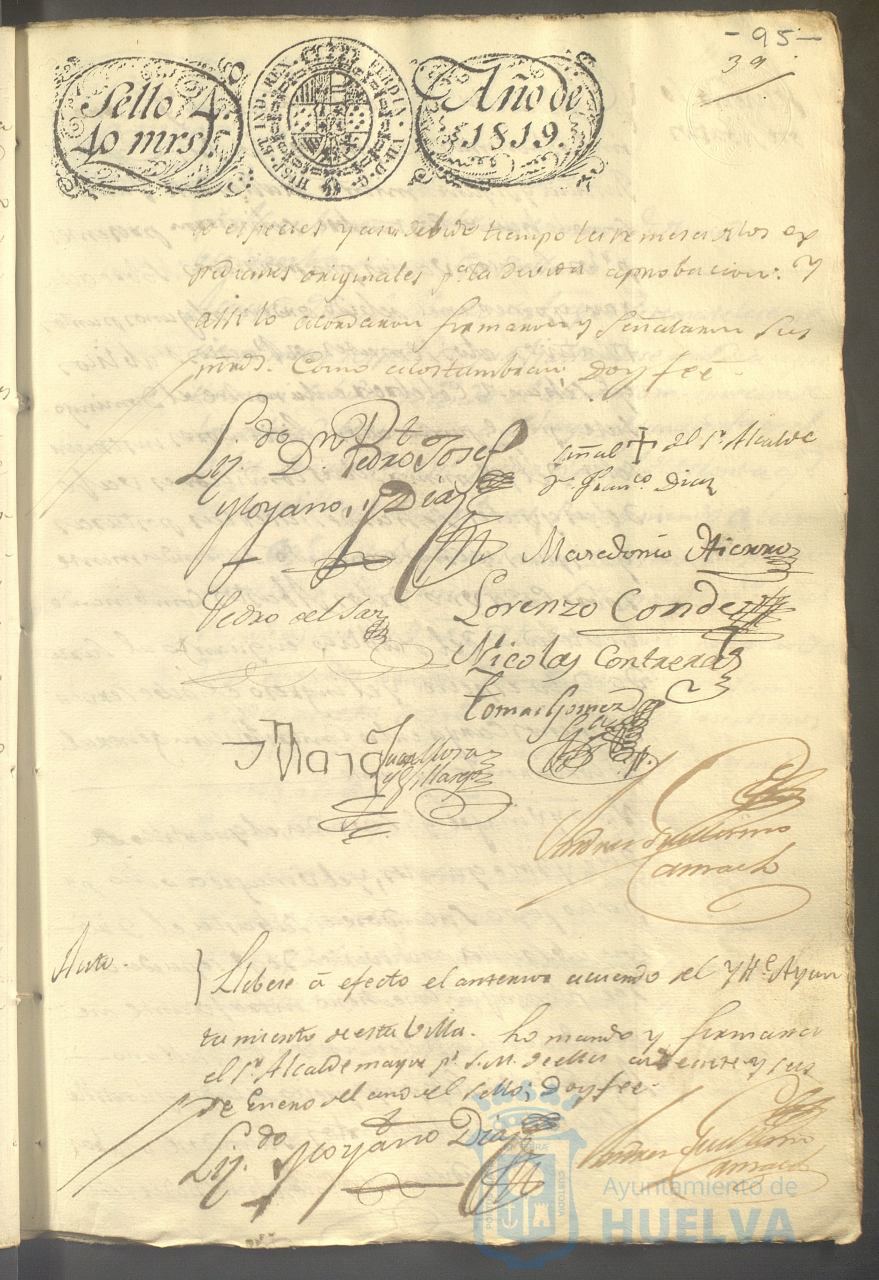 - 95 -
39
Sello 4º
40 mrs.
HISP. ET IND. REX. FERDIN. VII. D. G.
Año de
1819.
de especies y a su debido tiempo la remesa de los ex
pedientes originales pª la devida aprobacion. Y
assi lo acordaron firmaron y señalaron sus
mrds. como acostumbran Doy fee.
Lizdo Dn Pedro Josef
Moyano, y Diaz
señal + del Sr Alcalde
Dn Franco Diaz
Macedonio Hierro
Pedro del Saz
Lorenzo Conde
Nicolas Contreras
Tomas Gomez
Juan Mora
y Villarejo
Mora
Andres Guillermo
Camacho
Auto.
Llebese á efecto el anterior acuerdo del Ytte Ayun
tamiento de esta Villa. Lo mando y firmara
el Sr Alcalde mayor pr S.M. de ella en veinte y seis
de Enero del año del sello; Doy fee.
Lizdo Moyano Diaz
Andres Guillermo
Camacho
CUSTODIA
Ayuntamiento de
HUELVA